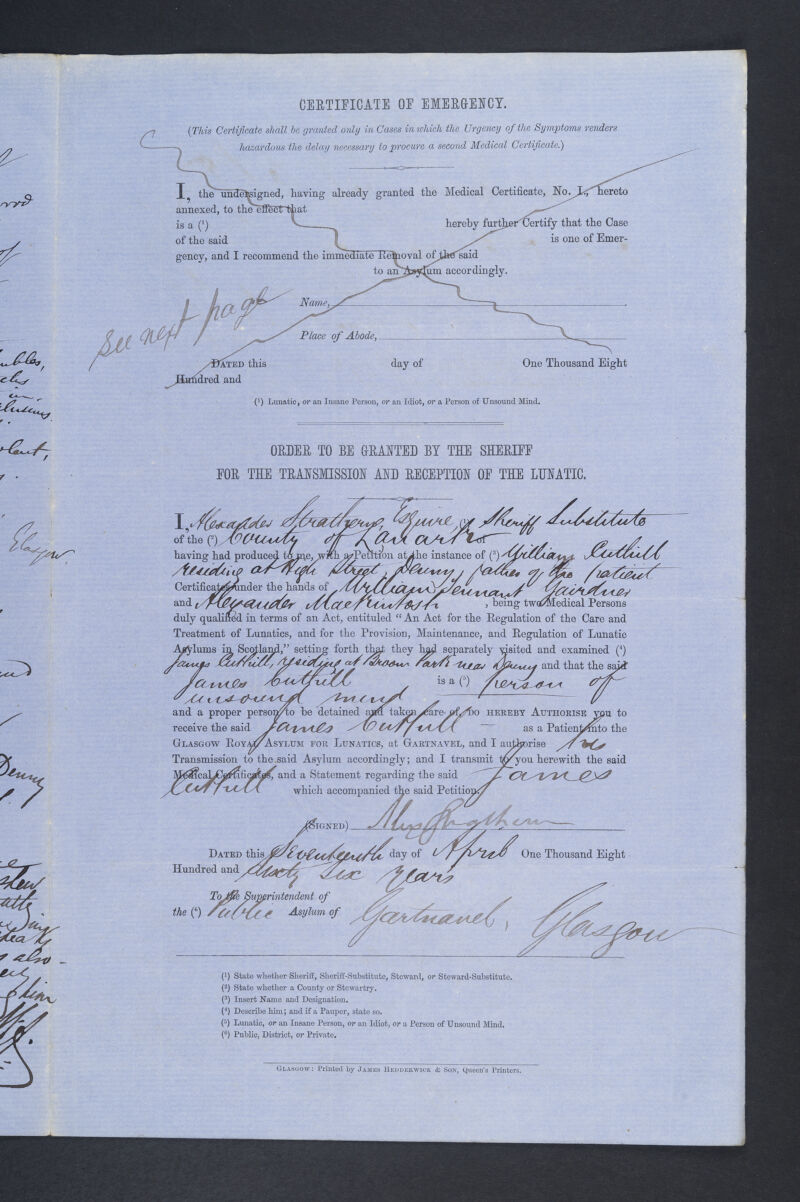 CERTIFICATE OF EMERGENCY.
(This Certificate shall be granted only in Cases in which the Urgency of the Symptoms renders
hazardous the delay necessary to procure a second Medical Certificate.)
I, the undersigned, having already granted the Medical Certificate, No. I., hereto
annexed, to the effect that
is a (¹) hereby further Certify that the Case
of the said is one of Emer-
gency, and I recommend the immediate Removal of the said
to an Asylum accordingly.
Name,
see next page
Place of Abode,
DATED this day of One Thousand Eight
Hundred and
(¹) Lunatic, or an Insane Person, or an Idiot, or a Person of Unsound Mind.
ORDER TO BE GRANTED BY THE SHERIFF
FOR THE TRANSMISSION AND RECEPTION OF THE LUNATIC.
I, Alexander Strathern, Esquire, (¹) Sheriff Substitute
of the (²) County of Lanark
having had produced to me, with a Petition at the instance of (³) William Cuthill
residing at High Street, Denny, father of the patient
Certificates under the hands of William Tennant Gairdner
and Alexander Mackintosh , being two Medical Persons
duly qualified in terms of an Act, entituled "An Act for the Regulation of the Care and
Treatment of Lunatics, and for the Provision, Maintenance, and Regulation of Lunatic
Asylums in Scotland," setting forth that they had separately visited and examined (⁴)
James Cuthill, residing at Broom Park near Denny and that the said
James Cuthill is a (⁵) person of
unsound mind
and a proper person to be detained and taken care of, DO HEREBY AUTHORISE you to
receive the said James Cuthill — as a Patient into the
GLASGOW ROYAL ASYLUM FOR LUNATICS, at GARTNAVEL, and I authorise his
Transmission to the said Asylum accordingly; and I transmit to you herewith the said
Medical Certificates, and a Statement regarding the said James
Cuthill which accompanied the said Petition.
(SIGNED) Alex Strathern
DATED this Seventeenth day of April One Thousand Eight
Hundred and Sixty Six years
To the Superintendent of
the (⁶) Public Asylum of Gartnavel, Glasgow
(¹) State whether Sheriff, Sheriff-Substitute, Steward, or Steward-Substitute.
(²) State whether a County or Stewartry.
(³) Insert Name and Designation.
(⁴) Describe him; and if a Pauper, state so.
(⁵) Lunatic, or an Insane Person, or an Idiot, or a Person of Unsound Mind.
(⁶) Public, District, or Private.
GLASGOW: Printed by JAMES HEDDERWICK & SON, Queen's Printers.
Glasgow.
Denny
also -
him